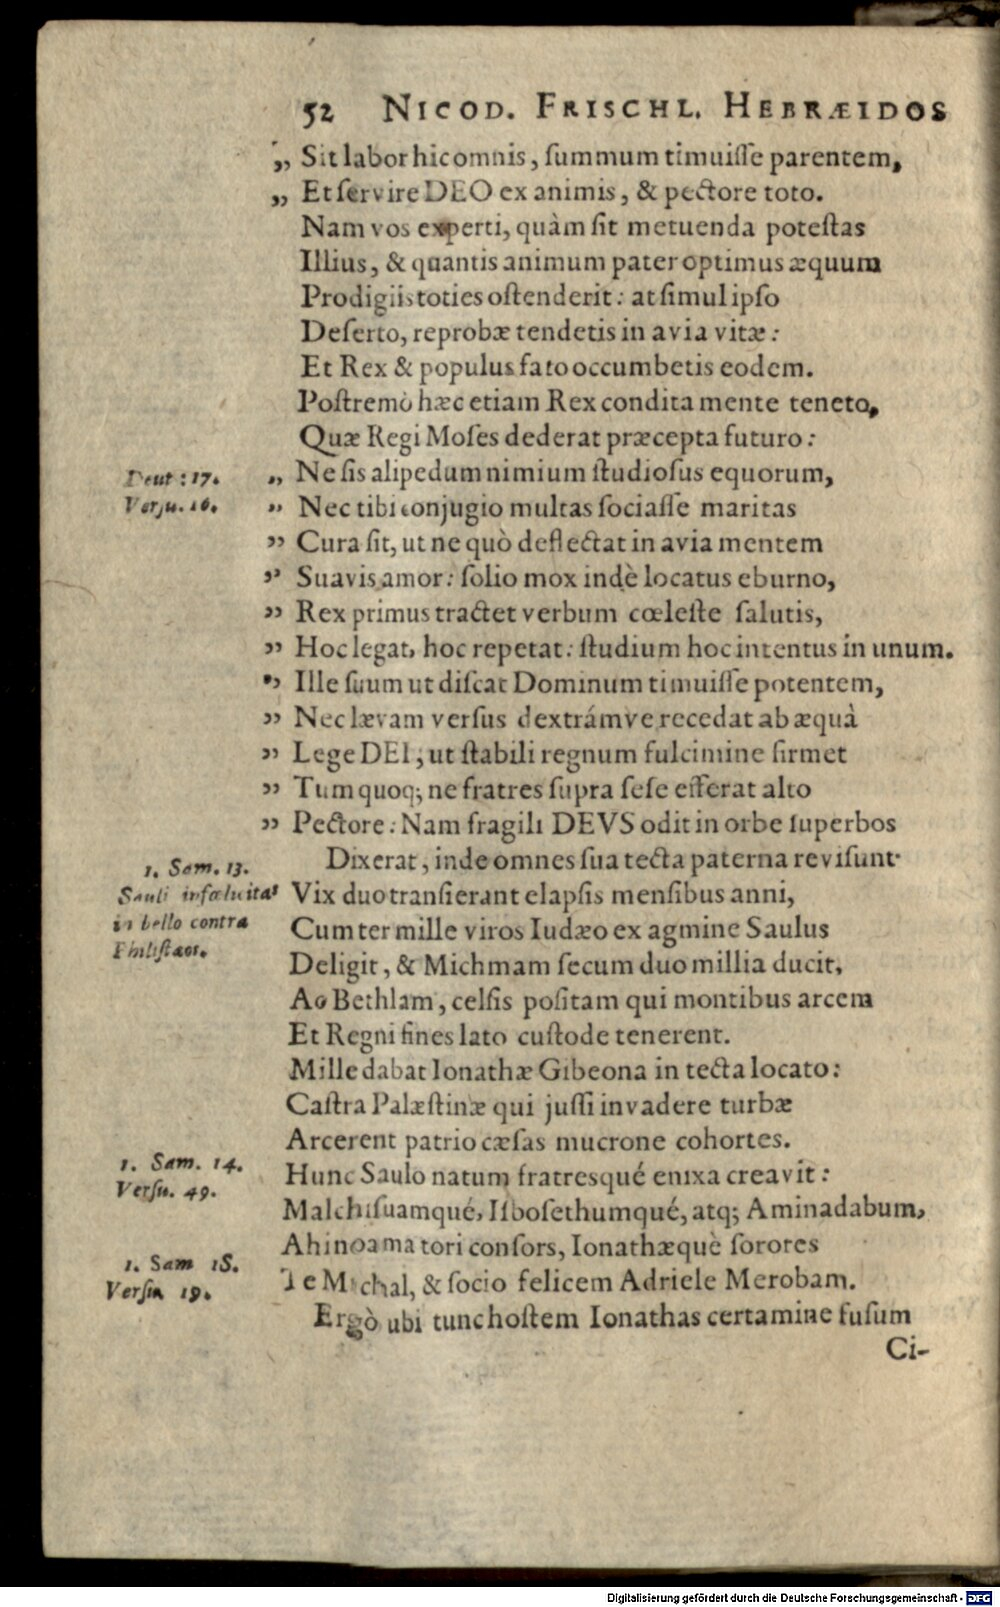 52 NICOD. FRISCHL. HEBRÆIDOS
„ Sit labor hic omnis, summum timuisse parentem,
„ Et servire DEO ex animis, & pectore toto.
Nam vos experti, quàm sit metuenda potestas
Illius, & quantis animum pater optimus æquum
Prodigiis toties ostenderit: at simul ipso
Deserto, reprobæ tendetis in avia vitæ:
Et Rex & populus fato occumbetis eodem.
Postremò hæc etiam Rex condita mente teneto,
Quæ Regi Moses dederat præcepta futuro:
Deut: 17.
Versu. 16.
„ Ne sis alipedum nimium studiosus equorum,
„ Nec tibi conjugio multas sociasse maritas
„ Cura sit, ut ne quò deflectat in avia mentem
„ Suavis amor: solio mox indè locatus eburno,
„ Rex primus tractet verbum cœleste salutis,
„ Hoc legat, hoc repetat: studium hoc intentus in unum.
„ Ille suum ut discat Dominum timuisse potentem,
„ Nec lævam versus dextrámve recedat ab æquà
„ Lege DEI; ut stabili regnum fulcimine firmet
„ Tum quoq; ne fratres supra sese efferat alto
„ Pectore: Nam fragili DEVS odit in orbe superbos
1. Sam. 13.
Sauli infœlicitas
in bello contra
Philistæos.
Dixerat, inde omnes sua tecta paterna revisunt.
Vix duo transierant elapsis mensibus anni,
Cum ter mille viros Iudæo ex agmine Saulus
Deligit, & Michmam secum duo millia ducit,
Ac Bethlam, celsis positam qui montibus arcem
Et Regni fines lato custode tenerent.
Mille dabat Ionathæ Gibeona in tecta locato:
Castra Palæstinæ qui jussi invadere turbæ
Arcerent patrio cæsas mucrone cohortes.
1. Sam. 14.
Versu. 49.
Hunc Saulo natum fratresqué enixa creavit:
Malchisuamqué, Isbosethumqué, atq; Aminadabum,
Ahinoama tori consors, Ionathæquè sorores
1. Sam 18.
Versu 19.
Te Michal, & socio felicem Adriele Merobam.
Ergò ubi tunc hostem Ionathas certamine fusum
Ci-
Digitalisierung gefördert durch die Deutsche Forschungsgemeinschaft - DFG